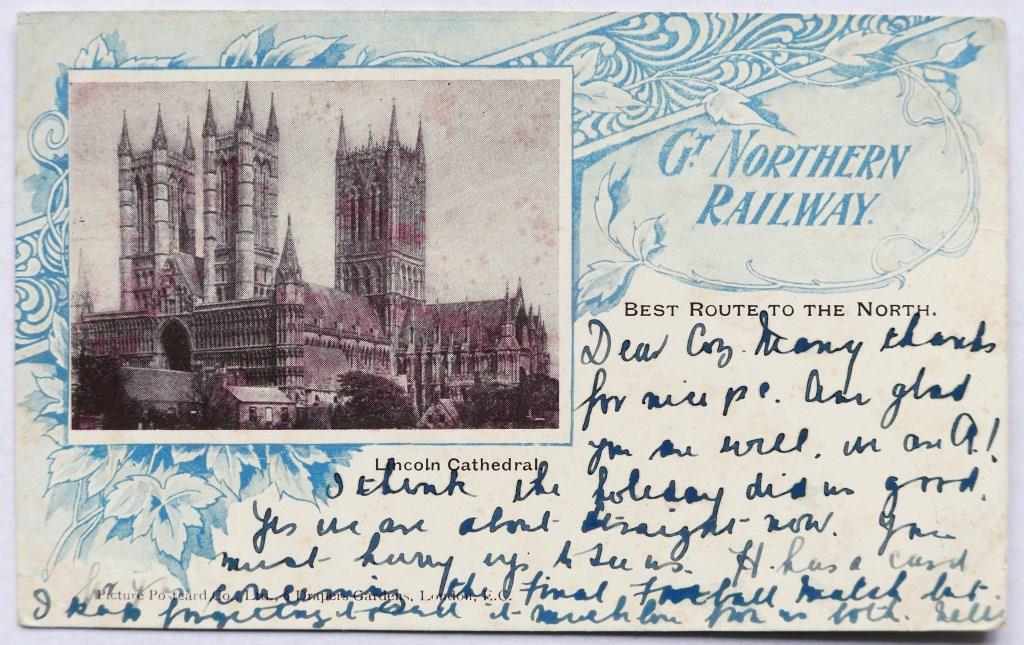 GT NORTHERN
RAILWAY.
BEST ROUTE TO THE NORTH.
Dear Coz. Many thanks
for nice pc. Am glad
you are well, we are A.!
Lincoln Cathedral
I think the holiday did us good.
Yes we are about straight now. You
must hurry up & see us. H. has a card
for
Picture Postcard Co., Ltd., 6 Drapers Gardens, London, E.C.
the Final Football Match but
I keep forgetting to send it much love from us both. Nell